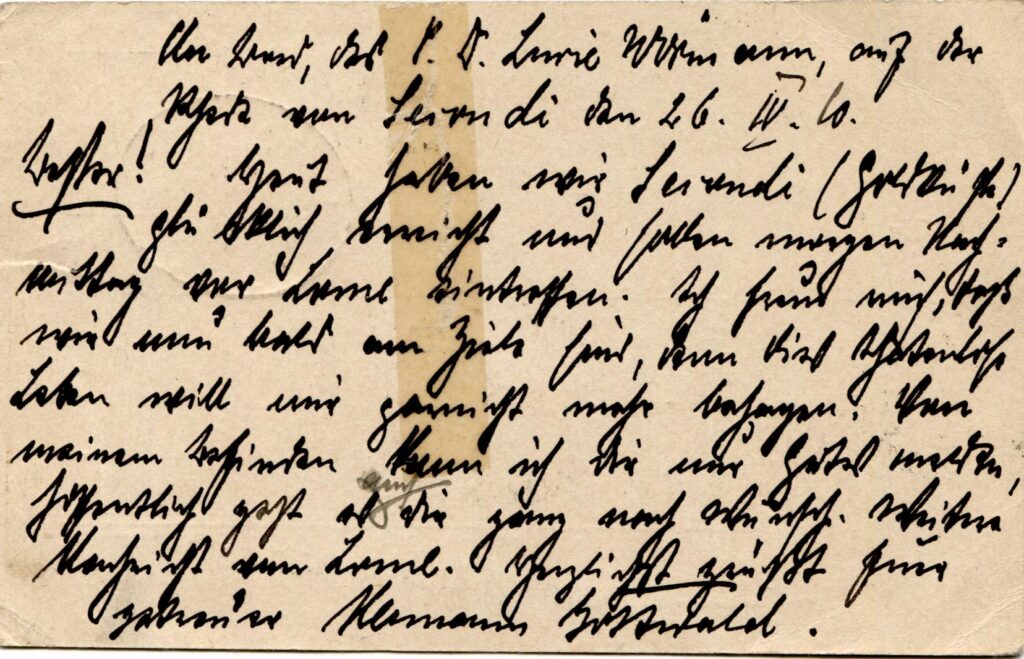 An Bord, des P. D. Lucie Wörmann, auf der
Rhede von Secondi den 26. IV. 10.
Bester! Heut haben wir Secondi (Goldküste)
glücklich erreicht und sollen morgen Nach-
mittag vor Lome eintreffen. Ich freue mich, daß
wir nun bald am Ziele sind, denn dies thatenlose
Leben will mir garnicht mehr behagen. Von
meinem Befinden kann ich dir nur Gutes melden,
hoffentlich geht es dir auch ganz nach Wunsch. Weitere
Nachricht von Lome. Herzlichst grüßt Euer
getreuer Hermann Gottwald.